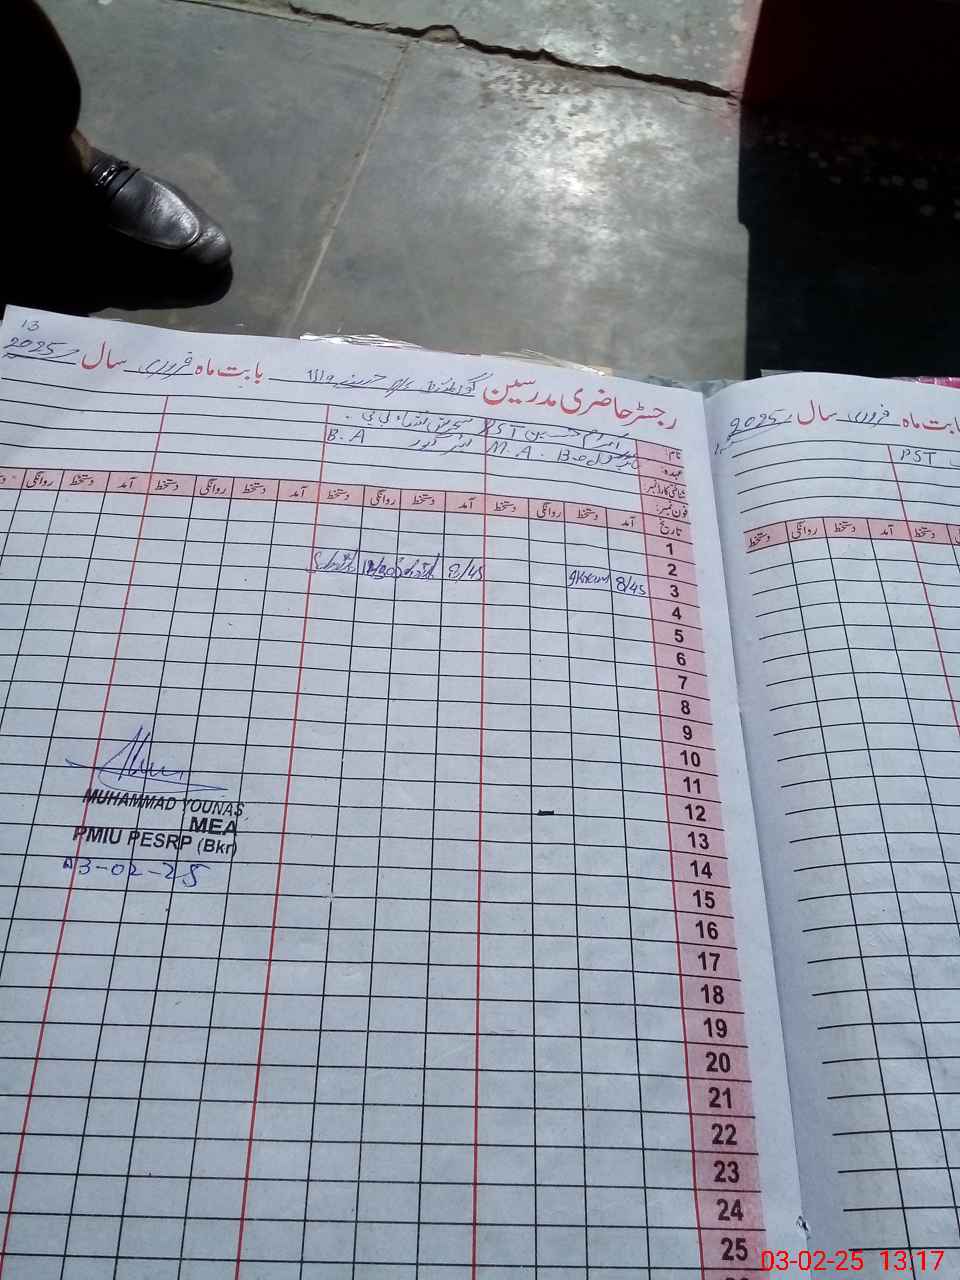 13
رجسٹر حاضری مدرسین بابت ماہ فروری سال 2025
نام:
اکرم حسین PST
عہدہ:
M.A. B.ed
B.A
شناختی کارڈ نمبر:
فون نمبر:
تاریخ آمد دستخط روانگی دستخط آمد دستخط روانگی دستخط آمد دستخط روانگی دستخط آمد دستخط روانگی
1
2
3 8/45 Akram 8/45
4
5
6
7
8
9
10
11
12
13
14
15
16
17
18
19
20
21
22
23
24
25
MUHAMMAD YOUNAS
MEA
PMIU PESRP (Bkr)
03-02-25
بابت ماہ فروری سال 2025
PST
دستخط آمد دستخط روانگی دستخط
03-02-25 13:17